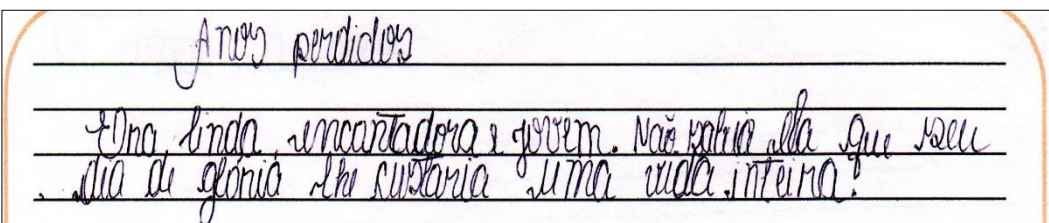 Anos perdidos
Era linda, encantadora e jovem. Não sabia ela que seu
dia de glória lhe custaria uma vida inteira.